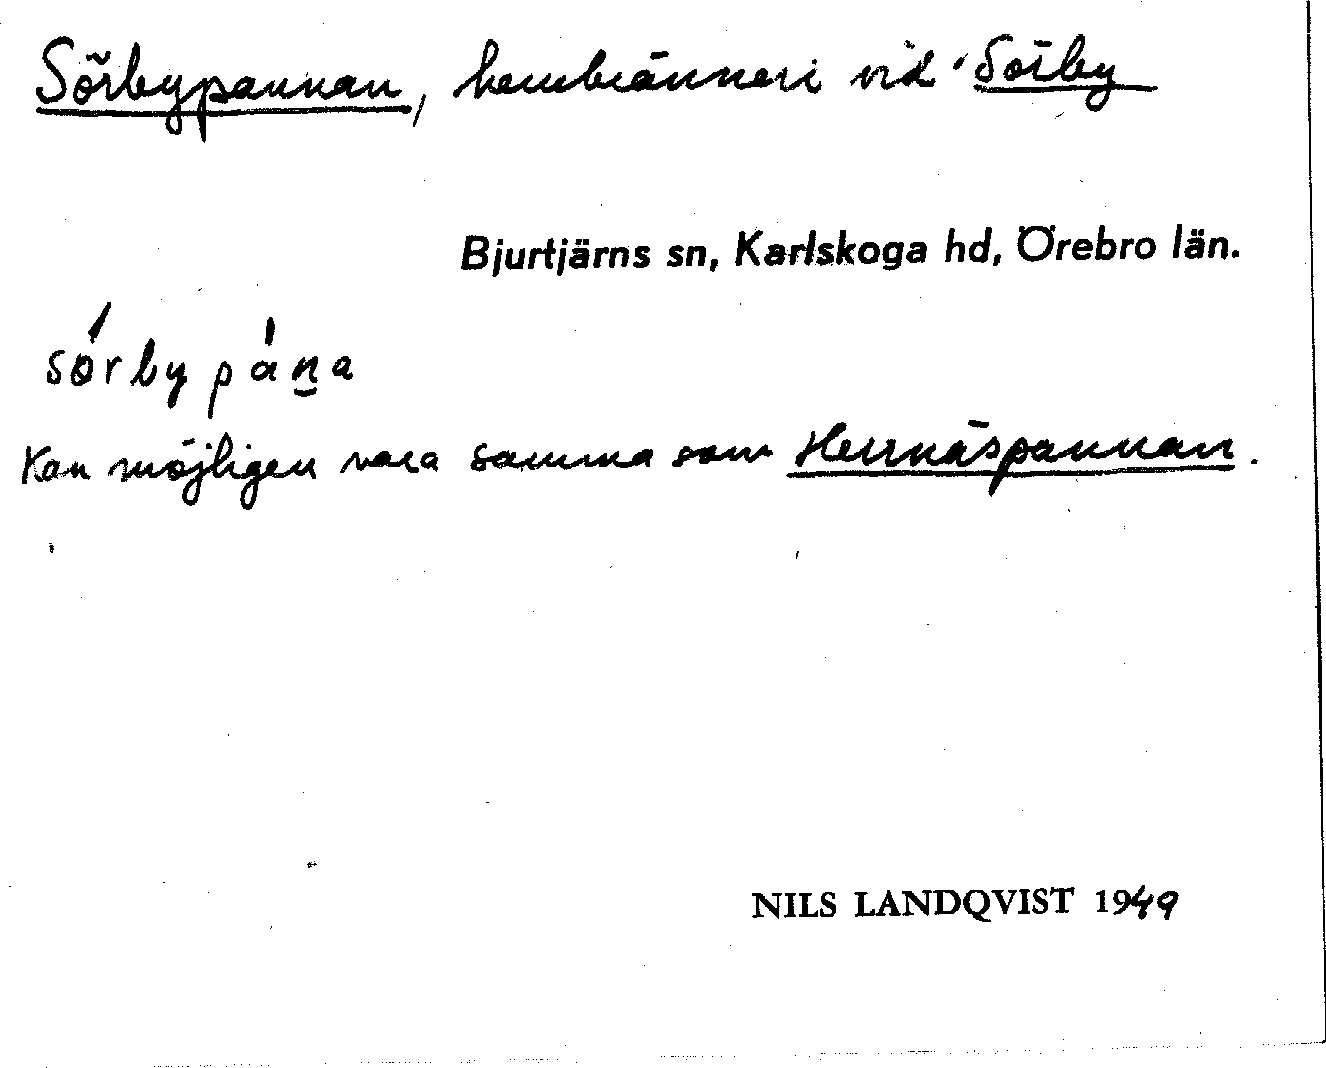 Sörbypannan, hembränneri vid Sörby
Bjurtjärns sn, Karlskoga hd, Örebro län.
sǿrby pána
Kan möjligen vara samma som Herrnäspannan.
NILS LANDQVIST 1949